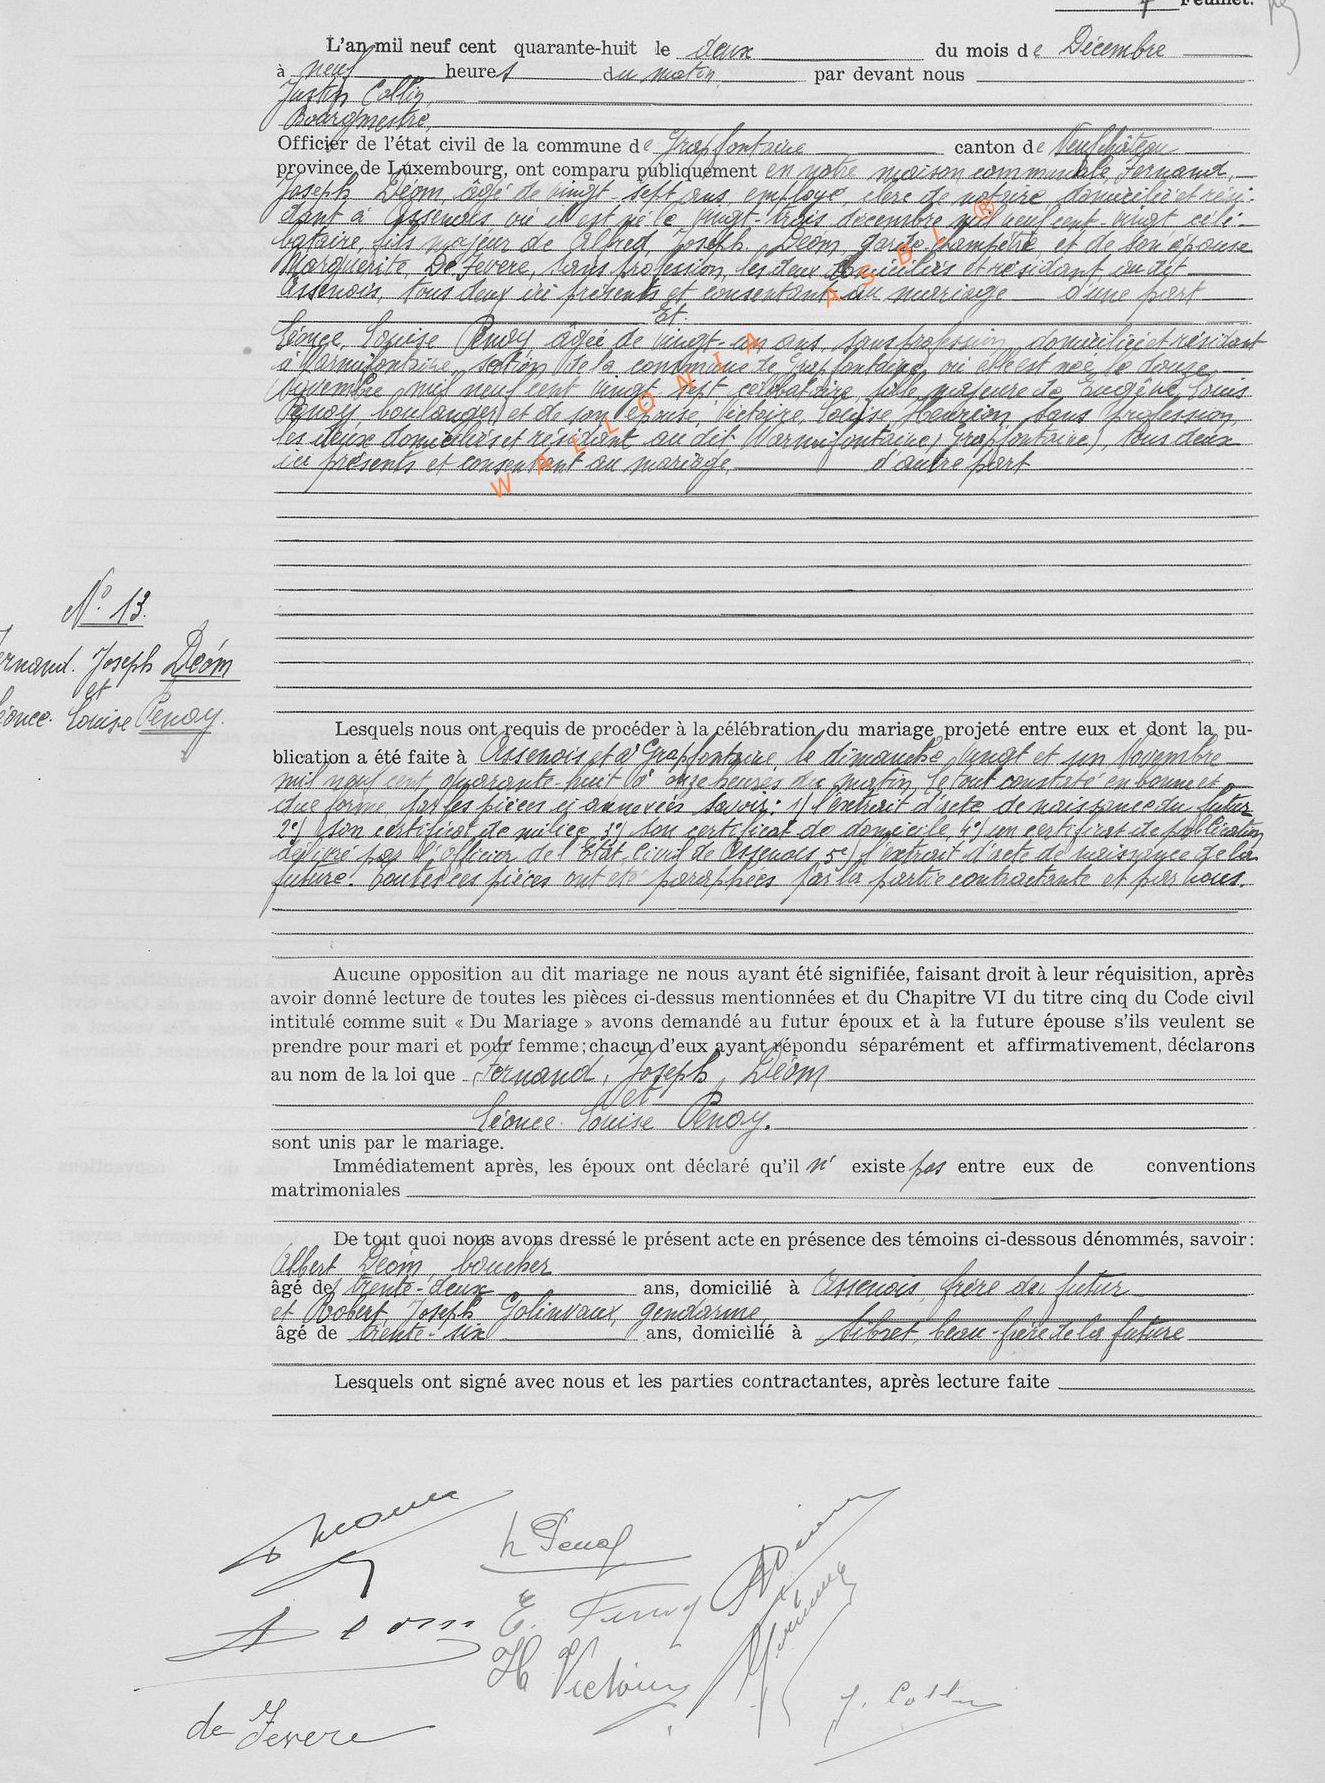 Feuillet.
L'an mil neuf cent quarante-huit le deux du mois de Décembre
à neuf heures du matin par devant nous
Justin Collin,
Bourgmestre,
Officier de l'état civil de la commune de Grapfontaine canton de Neufchâteau
province de Luxembourg, ont comparu publiquement en notre maison communale, Fernand,
Joseph Déom, âgé de vingt-sept ans, employé, clerc de notaire domicilié et rési-
dant à Assenois où il est né le vingt-trois décembre mil neuf cent-vingt céli-
bataire, fils majeur de Alfred, Joseph Déom, garde champêtre et de son épouse
Marguerite, De Fevere, sans profession, les deux domiciliés et résidant au dit
Assenois, tous deux ici présents et consentant au mariage d'une part
Et
Léonce, Louise Penoy âgée de vingt-un ans, sans profession, domiciliée et résidant
à Warmifontaine, section de la commune de Grapfontaine où elle est née le douze
Novembre mil neuf cent vingt-sept, célibataire, fille majeure de Eugène, Louis
Penoy, boulanger, et de son épouse, Victoire, Louise Henrion, sans profession,
les deux domiciliés et résidant au dit Warmifontaine, (Grapfontaine), tous deux
ici présents et consentant au mariage d'autre part
WALLONIA ASBL ®
N° 13.
Fernand. Joseph Déom
et
Léonce. Louise Penoy.
Lesquels nous ont requis de procéder à la célébration du mariage projeté entre eux et dont la pu-
blication a été faite à Assenois et à Grapfontaine, le dimanche vingt et un Novembre
mil neuf cent quarante-huit à onze heures du matin, le tout constaté en bonne et
due forme par les pièces ci annexées savoir: 1) l'extrait d'acte de naissance du futur
2°) son certificat de milice, 3°) son certificat de domicile, 4°) un certificat de publication
délivré par l'officier de l'Etat Civil de Assenois 5e) l'extrait d'acte de naissance de la
future. Toutes ces pièces ont été paraphées par la partie contractante et par nous.
Aucune opposition au dit mariage ne nous ayant été signifiée, faisant droit à leur réquisition, après
avoir donné lecture de toutes les pièces ci-dessus mentionnées et du Chapitre VI du titre cinq du Code civil
intitulé comme suit « Du Mariage » avons demandé au futur époux et à la future épouse s'ils veulent se
prendre pour mari et pour femme; chacun d'eux ayant répondu séparément et affirmativement, déclarons
au nom de la loi que Fernand, Joseph, Déom
et
Léonce. Louise Penoy.
sont unis par le mariage.
Immédiatement après, les époux ont déclaré qu'il n' existe pas entre eux de conventions
matrimoniales
De tout quoi nous avons dressé le présent acte en présence des témoins ci-dessous dénommés, savoir:
Albert Déom, boucher
âgé de trente-deux ans, domicilié à Assenois, frère du futur
et Robert Joseph Golinvaux, gendarme
âgé de trente-six ans, domicilié à Sibret, beau-frère de la future
Lesquels ont signé avec nous et les parties contractantes, après lecture faite
L Penoy
E. Penoy
Déom
H Victoire
de Fevere
J. Collin